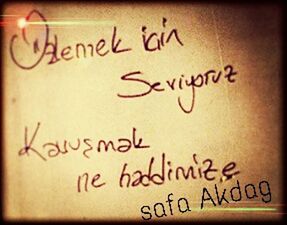 Özlemek için
Seviyoruz
Kavuşmak
ne haddimize
safa Akdag